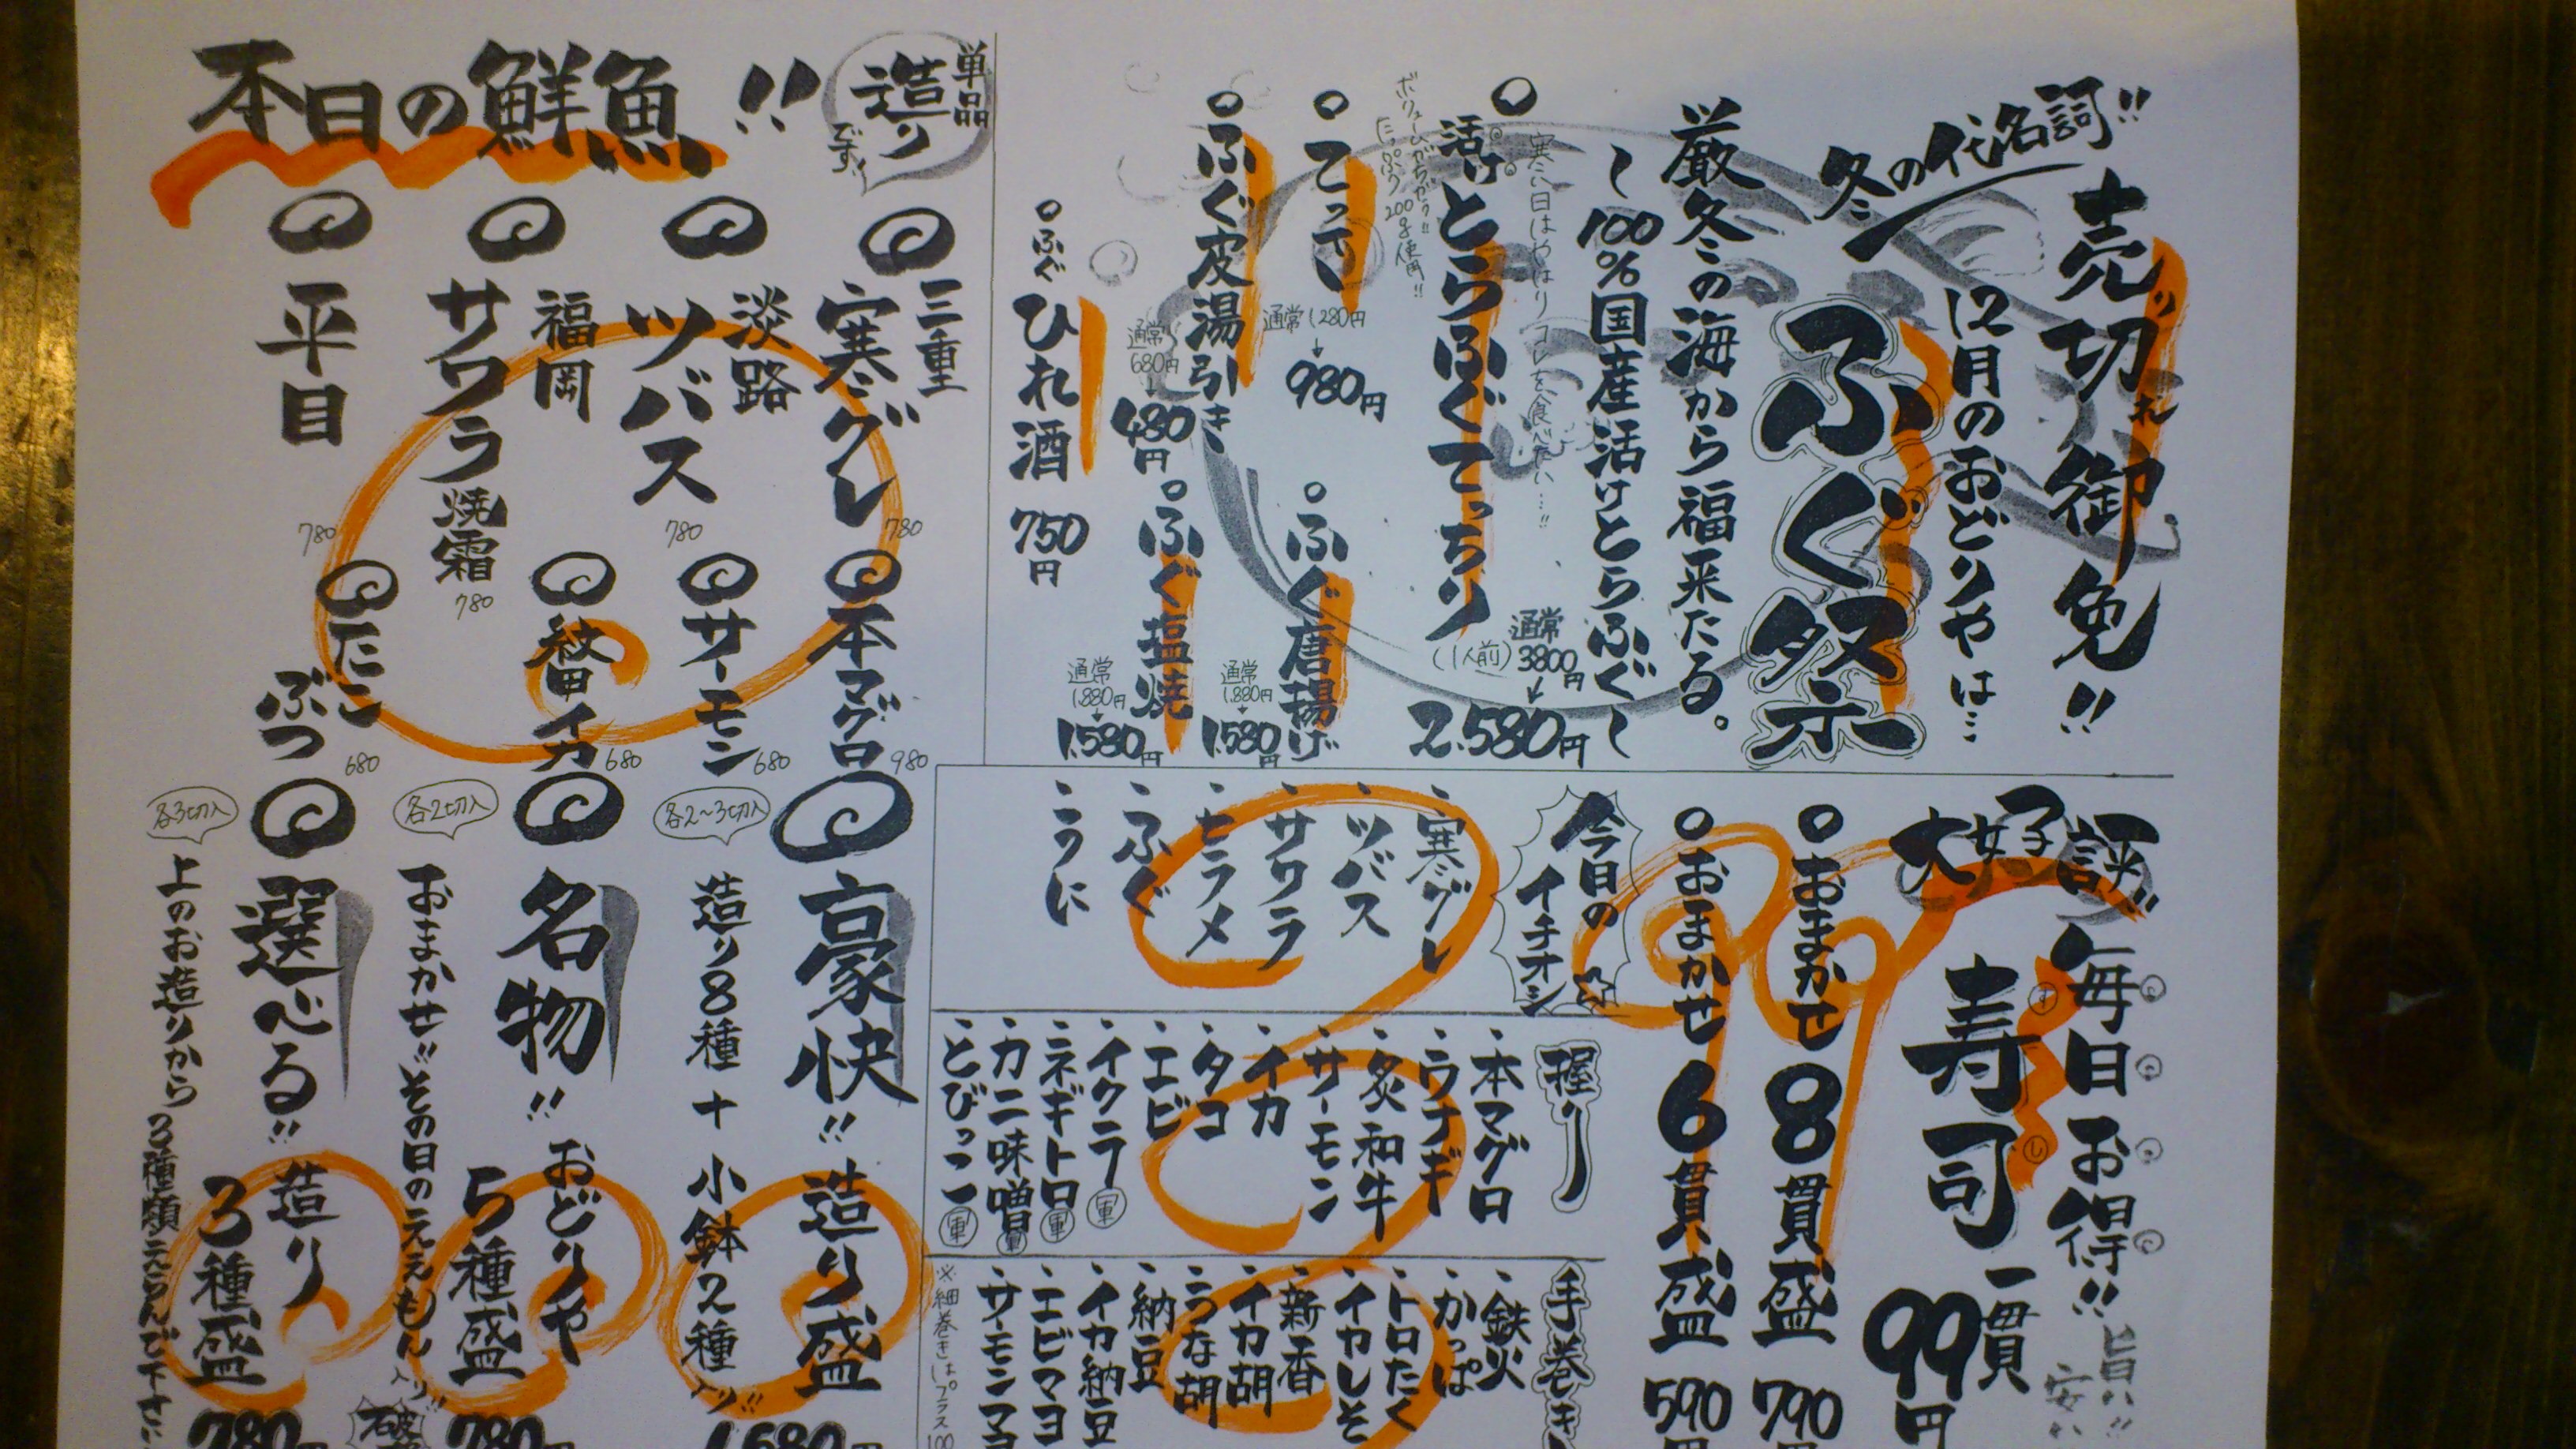 売り切れ御免!!
冬の代名詞!!
12月のおどりやは…
ふぐ祭
厳冬の海から福来たる。
〜100%国産活けとらふぐ〜
寒い日はやはりコレを食べたい…!!
活けとらふぐてっちり
(1人前)
通常3800円
↓
2.580円
200g使用!!
てっさ
通常1280円
↓
980円
ふぐ唐揚げ
通常1.880円
↓
1.580円
ふぐ皮湯引き
通常680円
↓
480円
ふぐ塩焼
通常1.880円
↓
1.580円
ふぐひれ酒 750円
大好評!!
毎日お得!!
旨い!!
安い
寿司
すし
一貫
99円
おまかせ8貫盛 790円
おまかせ6貫盛 590円
今日のイチオシ☆
・寒グレ
・ツバス
・サワラ
・ヒラメ
・ふぐ
・こうに
握り
・本マグロ
・ウナギ
・炙和牛
・サーモン
・イカ
・タコ
・エビ
・イクラ(軍)
・ネギトロ(軍)
・カニ味噌(軍)
・とびっこ(軍)
手巻き
・鉄火
・かっぱ
・トロたく
・イカしそ
・新香
・イカ胡
・うな胡
・納豆
・イカ納豆
・エビマヨ
・サーモンマヨ
※細巻きはプラス100
本日の鮮魚!!
単品
造り
です!
三重
寒グレ 780
淡路
ツバス 780
福岡
サワラ焼霜 780
平目 780
本マグロ 980
サーモン 680
紋甲イカ 680
たこぶつ 680
豪快!! 造り盛
各2〜3切入
造り8種+小鉢2種入り!!
1.680
名物!! おどりや5種盛
各2切入
おまかせ!!その日のええもん入り!!
780
選べる!! 造り3種盛
各3切入
上のお造りから3種類えらんで下さい
780円